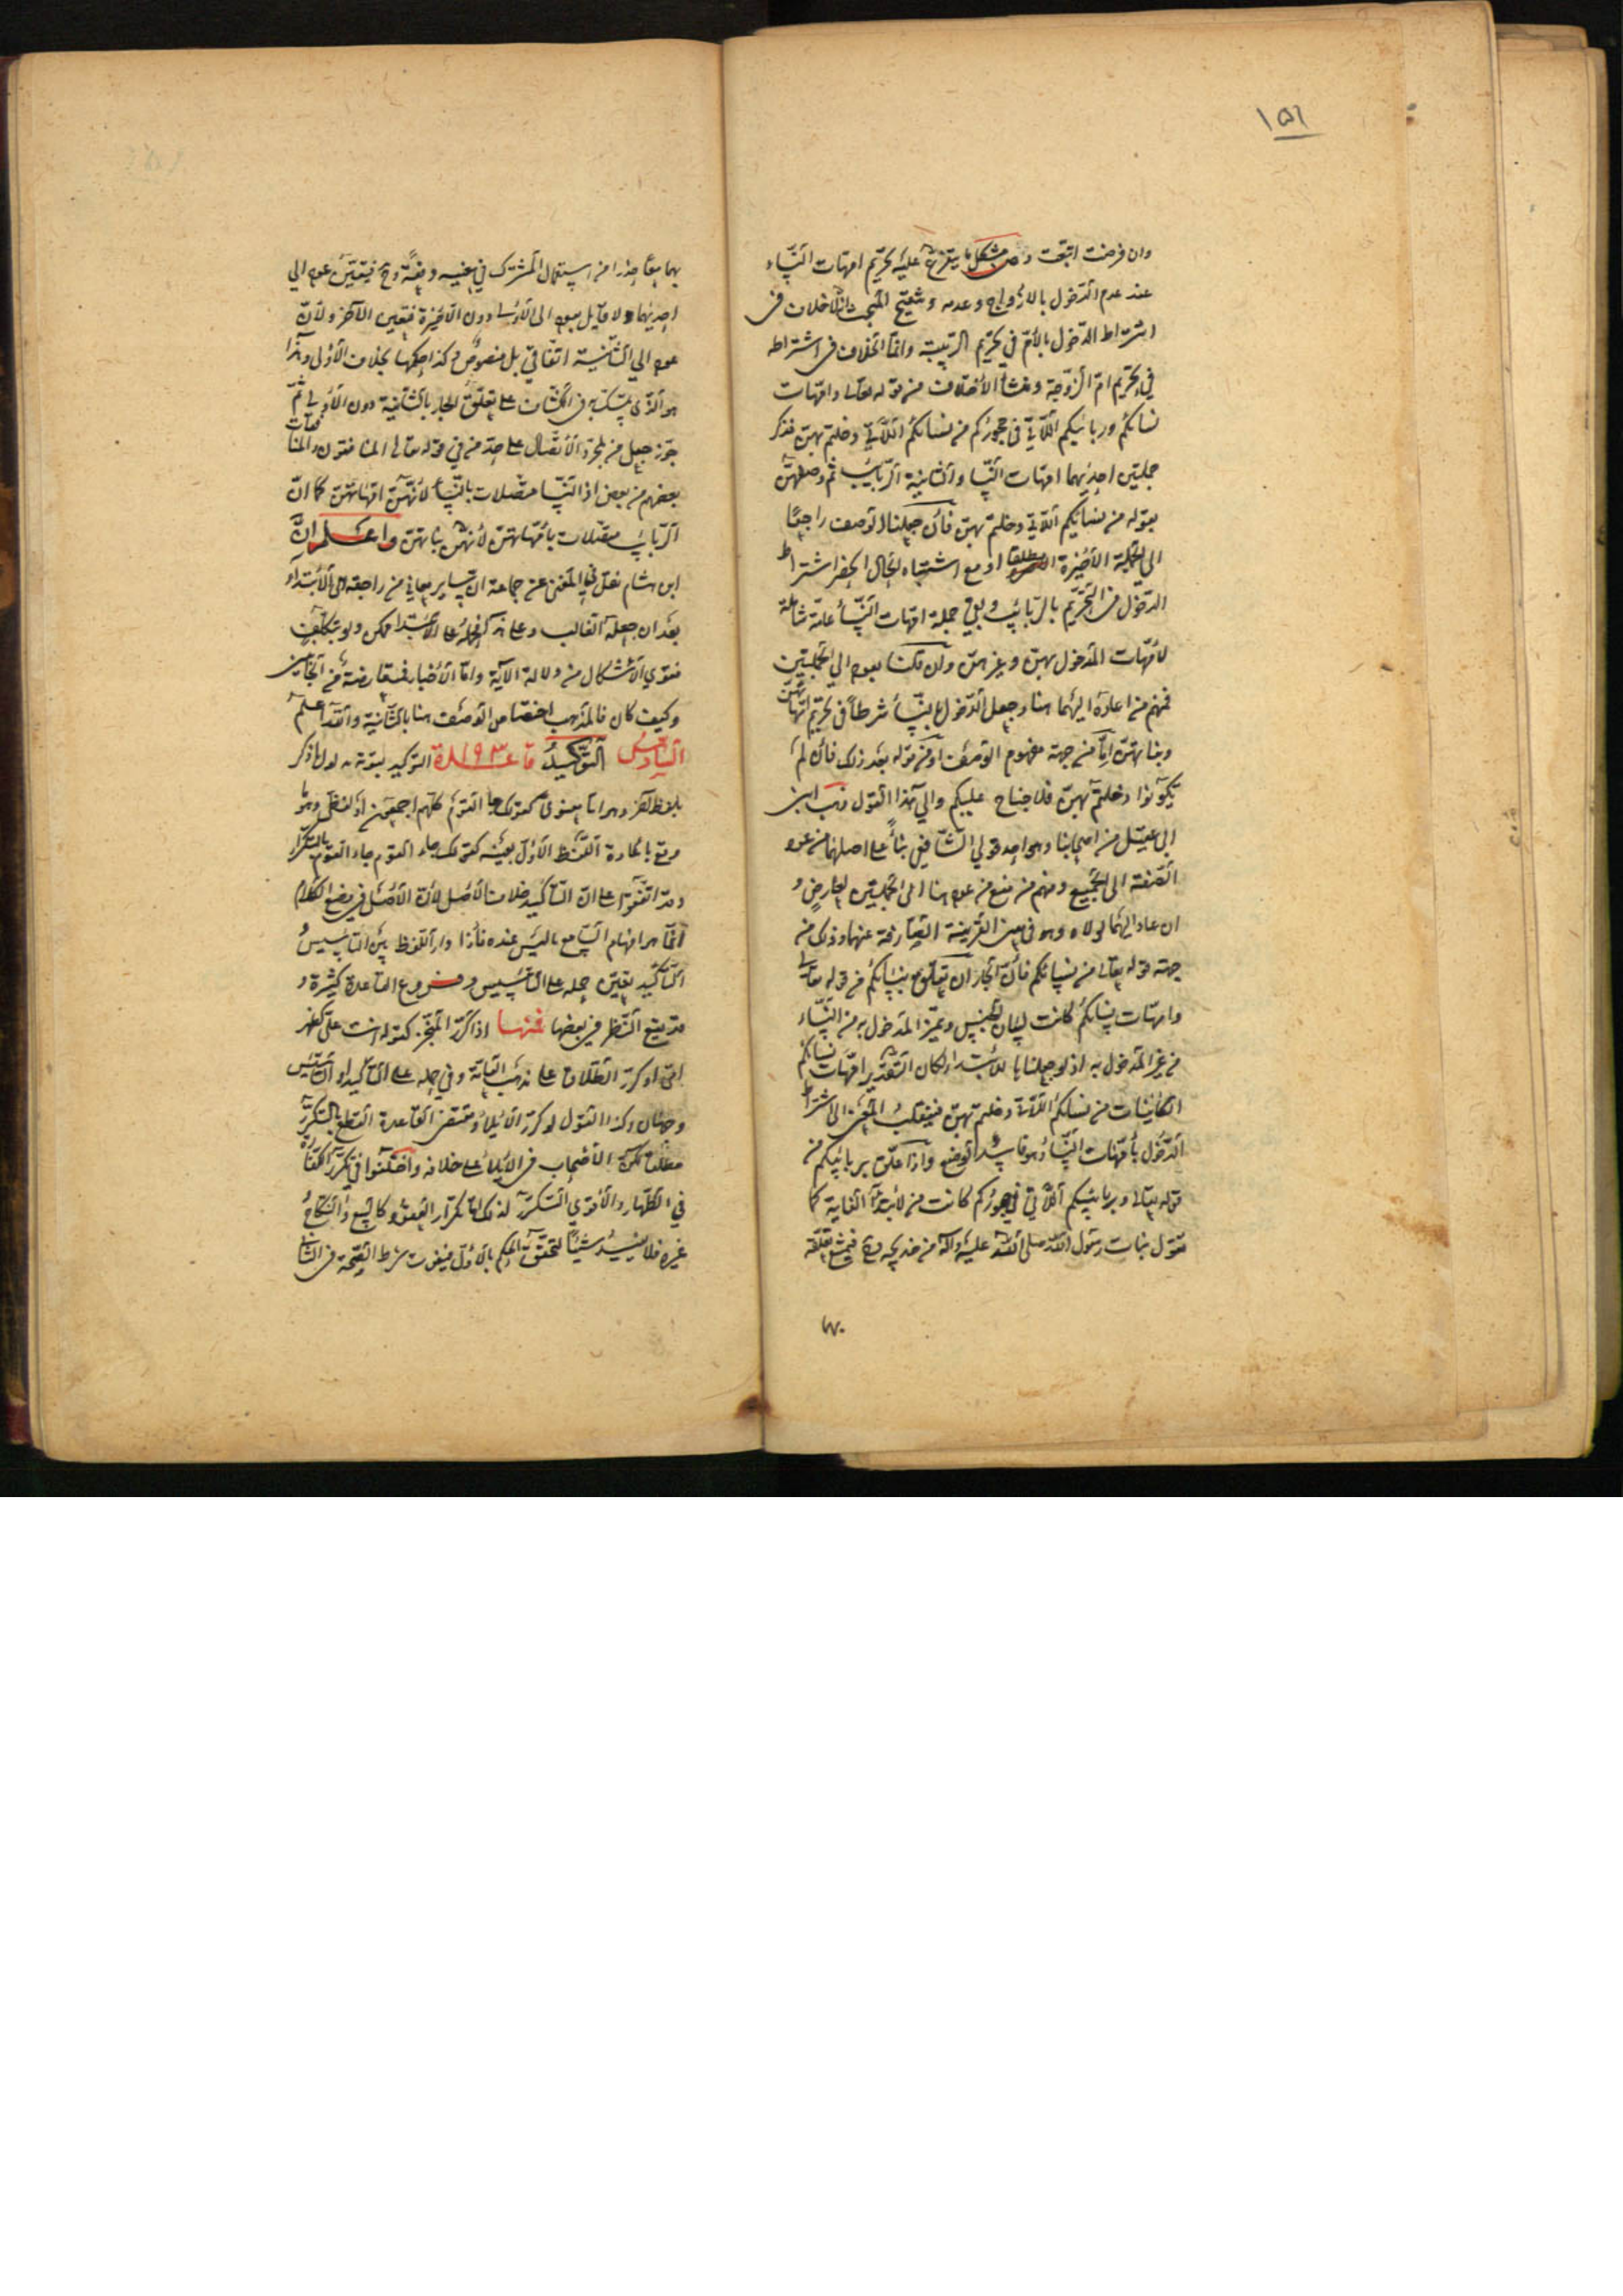 ١٥٦
وان فرضت اتبعت ومن مشكل ما يتفرع عليه تحريم امهات النساء
عند عدم الدخول بالازواج وعدمه وتنقيح المبحث انه لا خلاف في
اشتراط الدخول بالام في تحريم الربيبة وانما الخلاف في اشتراطه
في تحريم ام الزوجة ومنشأ الاختلاف من قوله تعالى وامهات
نسائكم وربائبكم اللاتي في حجوركم من نسائكم اللاتي دخلتم بهن فذكر
جملتين احديهما امهات النساء والثانية الربائب ثم وصفهن
بقوله من نسائكم اللاتي دخلتم بهن فان جعلنا الوصف راجعا
الى الجملة الاخيرة مطلقا او مع اشتباه الحال اختص اشتراط
الدخول في التحريم بالربائب وبقي جملة امهات النساء عامة شاملة
لامهات المدخول بهن وغيرهن وان قلنا بعوده الى الجملتين
فمنهم من اعاده اليهما هنا وجعل الدخول بالنساء شرطا في تحريم امهاتهن
وبناتهن اما من جهة مفهوم الوصف او من قوله بعد ذلك فان لم
تكونوا دخلتم بهن فلا جناح عليكم والى هذا القول ذهب ابن
ابي عقيل من اصحابنا وهو احد قولي الشافعي بناء على اصلهما من عود
الصفة الى الجميع ومنهم من منع من عوده هنا الى الجملتين لعارض و
ان عاد اليهما لولاه وهو في معنى القرينة الصارفة عنهما وذلك من
جهة قوله تعالى من نسائكم فان الجار ان تعلق بنسائكم من قوله تعالى
وامهات نسائكم كانت لبيان الجنس وتميز المدخول به من النساء
من غير المدخول به اذ لو جعلناها للابتداء لكان التقدير امهات نسائكم
الكائنات من نسائكم اللاتي دخلتم بهن فينقلب المعنى الى اشتراط
الدخول بامهات النساء وهو فاسد الوضع واذا علق بربائبكم من
قوله تعالى وربائبكم اللاتي في حجوركم كانت من لابتداء الغاية كما
تقول بنات رسول الله صلى الله عليه وآله من خديجة وح فيمتنع تعلقه
بهما
بهما معا حذرا من استعمال المشترك في معنييه دفعة وح فيتعين عوده الى
احديهما ولا قايل بعوده الى الاولى دون الاخيرة فتعين الآخر ولان
عوده الى الثانية اتفاقي بل منصوص كذا حكمها بخلاف الاولى وهذا
هو الذي تمسك به في الكشاف على تعلق الجار بالثانية دون الاولى ثم
جوز جعل من لمجرد الاتصال على حد من في قوله تعالى المنافقون والمنافقات
بعضهم من بعض اذ النساء متصلات بالنساء لانهن امهاتهن كما ان
الربائب متصلات بامهاتهن لانهن بناتهن واعلم ان
ابن هشام نقل في المغني عن جماعة ان سائر معاني من راجعة الى الابتداء
بعد ان جعله الغالب وعلى هذا حملها على الابتداء ممكن ولو بتكلف
فقوي الاشكال من دلالة الآية واما الاخبار فمتعارضة من الجانبين
وكيف كان فالمذهب اختصاص الوصف هنا بالثانية والله اعلم
السادس التوكيد قاعدة ١٩٣ التوكيد تقوية مدلول ما ذكر
بلفظ آخر وهو اما معنوي كقولك جاء القوم كلهم اجمعون او لفظي وهو ما
وقع باعادة اللفظ الاول بعينه كقولك جاء القوم جاء القوم بالتكرار
وقد اتفقوا على ان التأكيد خلاف الاصل لان الاصل في وضع الكلام
انما هو افهام السامع ما ليس عنده فاذا دار اللفظ بين التأسيس و
التأكيد تعين حمله على التأسيس وفروع القاعدة كثيرة و
قد يقع النظر في بعضها فمنها اذا كرر المنجز كقوله انت علي كظهر
امي او كرر الطلاق على مذهب العامة وفي حمله على التأكيد او التأسيس
وجهان وكذا القول لو كرر الايلاء ومقتضى القاعدة القطع بالتكرر
مطلقا لكن الاصحاب في الايلاء على خلافه واختلفوا في تكرر الكفارة
في الظهار والاقوى التكرر لذلك اما تكرار العقود كالبيع والنكاح و
غيره فلا يفيد شيئا لتحقق الحكم بالاول فيفوت شرط الصحة في الثاني